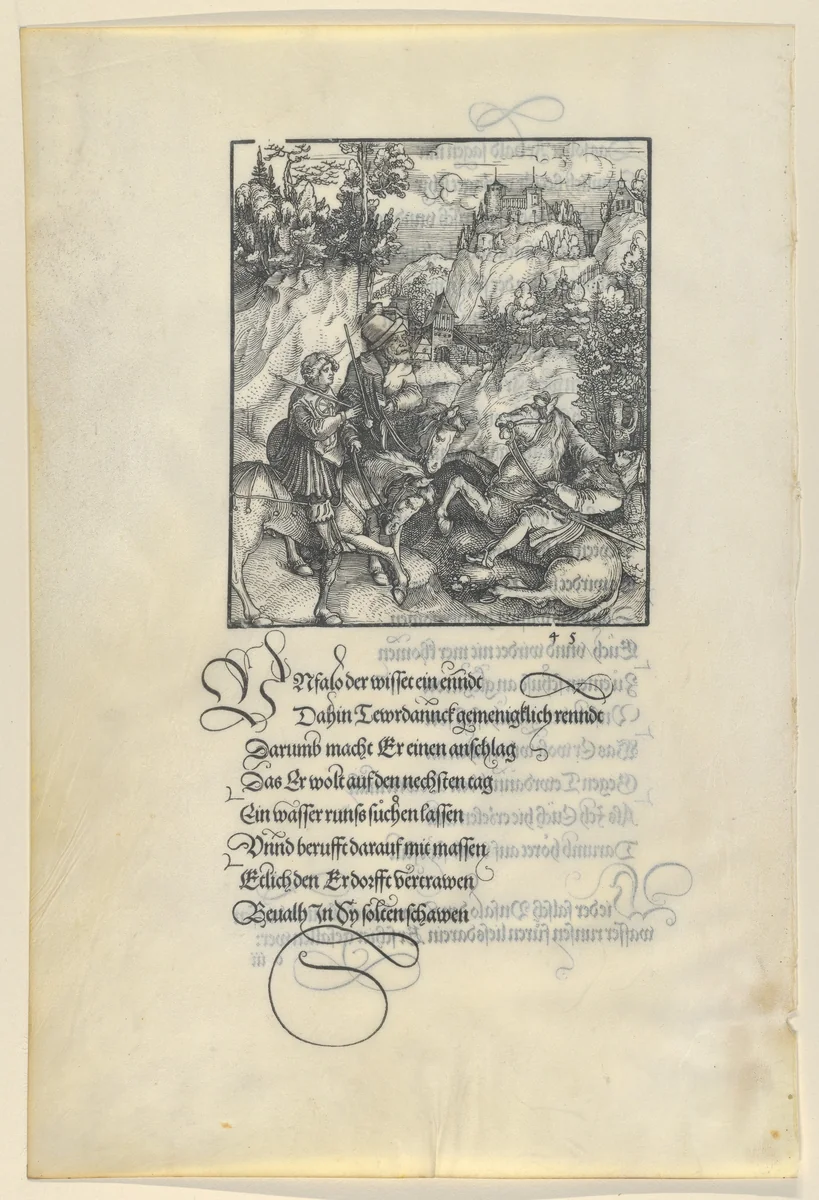 45
VNfalo der wisset ein enndt
Dahin Tewrdannck gemenigklich renndt
Darumb macht Er einen anschlag
Das Er wolt auf den nechsten tag
Ein wasser runss sůchen lassen
Vnnd berufft darauf mit massen
Etlich den Er dorfft vertrawen
Beualh In Sy solten schawen